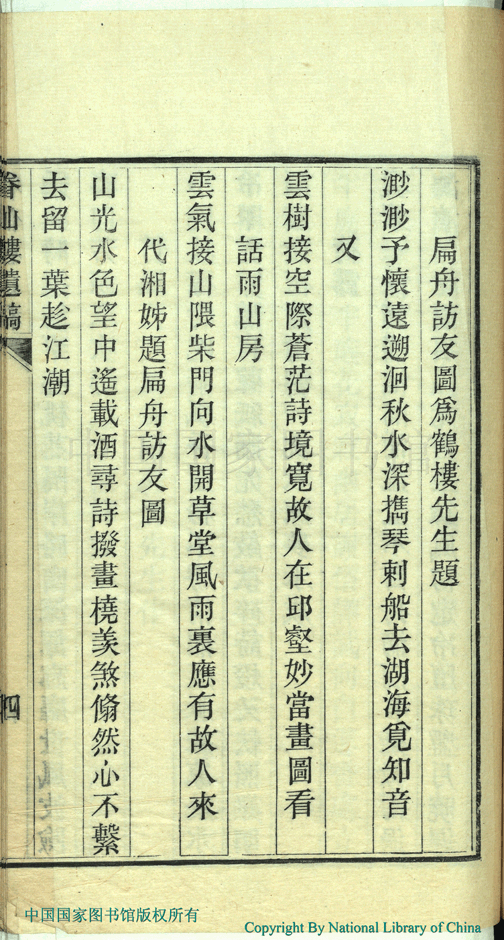 扁舟訪友圖爲鶴樓先生題
渺渺予懷遠遡洄秋水深擕琴刺船去湖海覓知音
又
雲樹接空際蒼茫詩境寬故人在邱壑妙當畫圖看
話雨山房
雲氣接山隈柴門向水開草堂風雨裏應有故人來
代湘姊題扁舟訪友圖
山光水色望中遙載酒尋詩撥畫橈羨煞翛然心不繫
去留一葉趁江潮
眷仙樓遺稿
四
中国国家图书馆版权所有
Copyright By National Library of China